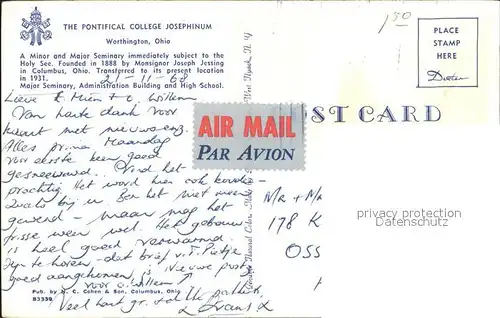 THE PONTIFICAL COLLEGE JOSEPHINUM
Worthington, Ohio
A Minor and Major Seminary immediately subject to the
Holy See. Founded in 1888 by Monsignor Joseph Jessing
in Columbus, Ohio. Transferred to its present location
in 1931.
Major Seminary, Administration Building and High School.
21-11-68
Lieve t. Mien + o. Willem
Van harte dank voor
kaart met nieuws enz.
Alles prima. Maandag
voor eerste keer goed
gesneeuwd. Vind het
prachtig. Het word hier ook kouder
Zoals bij U. Ben het niet meer
gewend - maar mag het
frisse weer wel. Het gebouw
is heel goed verwarmd.
Fijn te horen - dat brief v. t. Pietje
goed aangekomen is. Nieuwe post
voor o. Willem
Veel hart. gr.
Frans
Pub. by W. C. Cohen & Son, Columbus, Ohio
B3339
AIR MAIL
PAR AVION
POST CARD
PLACE
STAMP
HERE
1 50
M/R + M/R
178 K
OSS
privacy protection
Datenschutz.